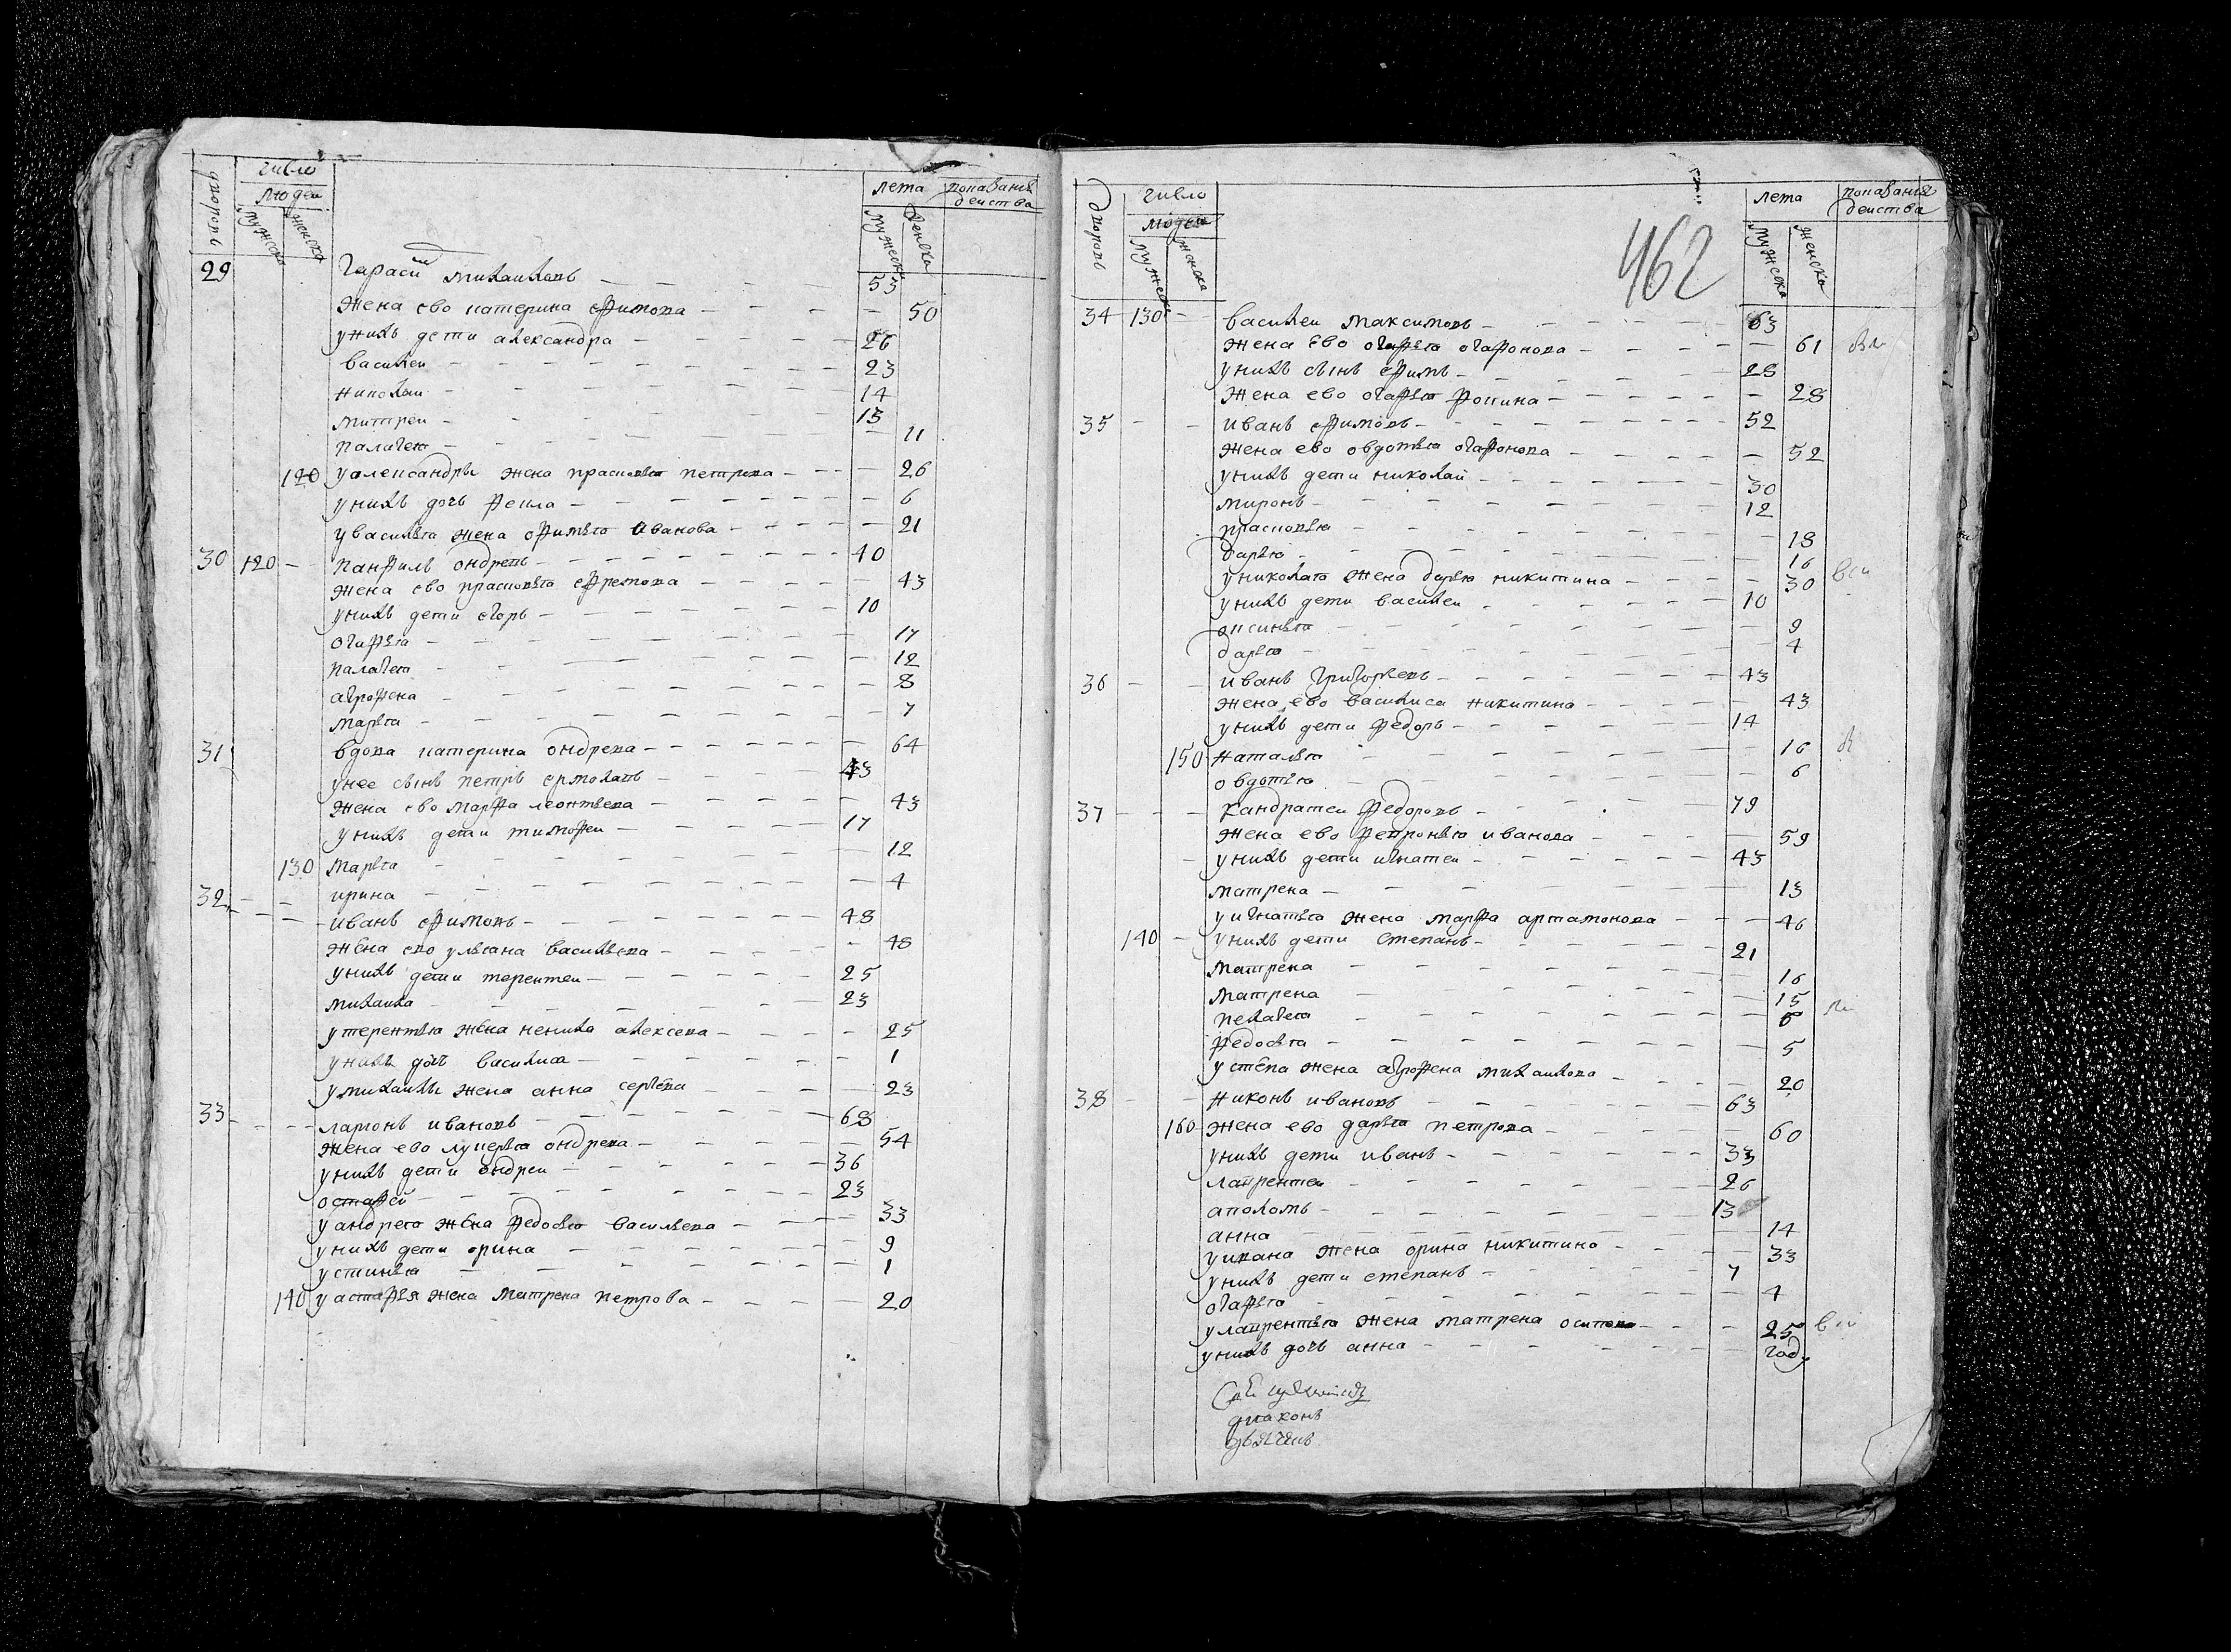 дворовъ число людей лета показания действа
мужеска женска мужеска женска
29 Гарасимъ михаиловъ 53
жена ево катерина ефимова 50
унихъ дети александра 26
василеи 23
николаи 14
митреи 13
палагея 11
120 уалександры жена прасковья петрова 26
унихъ дочь фекла 6
увасилья жена офимья иванова 21
30 120 панфилъ ондревъ 40
жена ево прасковья ефремова 43
унихъ дети егоръ 10
огафья 17
палагея 12
аграфена 8
марья 7
31 вдова катерина ондрева 64
унее сынъ петръ ермолавъ 43
жена ево марфа леонтьева 43
унихъ дети тимофеи 17
130 марья 12
ирина 4
32 иванъ ефимовъ 48
жена ево ульяна васильева 48
унихъ дети терентеи 25
михаила 23
утерентья жена ненила алексева 25
унихъ дочь василиса 1
умихаилы жена анна сергева 23
33 ларионъ ивановъ 68
жена ево лукерья ондрева 54
унихъ дети ондреи 36
остафеи 23
уандрея жена федосья васильева 33
унихъ дети орина 9
устинья 1
140 уастафья жена матрена петрова 20
462
дворовъ число людей лета показания действа
мужеска женска мужеска женска
34 130 василеи максимовъ 63
жена ево огафья огафонова 61
унихъ сынъ ефимъ 28
жена ево огафья фокина 28
35 иванъ ефимовъ 52
жена ево овдотья огафонова 52
унихъ дети николаи 30
миронъ 12
прасковья 18
дарья 16
униколая жена дарья никитина 30
унихъ дети василеи 10
оксинья 9
дарья 4
36 иванъ григорьевъ 43
жена ево василиса никитина 43
унихъ дети федоръ 14
150 наталья 16
овдотья 6
37 кандратеи федоровъ 79
жена ево февронья иванова 59
унихъ дети игнатеи 43
матрена 13
уигнатья жена марфа артамонова 46
140 унихъ дети степанъ 21
матрена 16
матрена 15
пелагея 8
федосья 5
устепа жена аграфена михаилова 20
38 никонъ ивановъ 63
160 жена ево дарья петрова 60
унихъ дети иванъ 33
лаврентеи 26
аполомъ 13
анна 14
уивана жена орина никитина 33
унихъ дети степанъ 7
огафья 4
улаврентья жена матрена осипова 25
унихъ дочь анна год
диаконъ